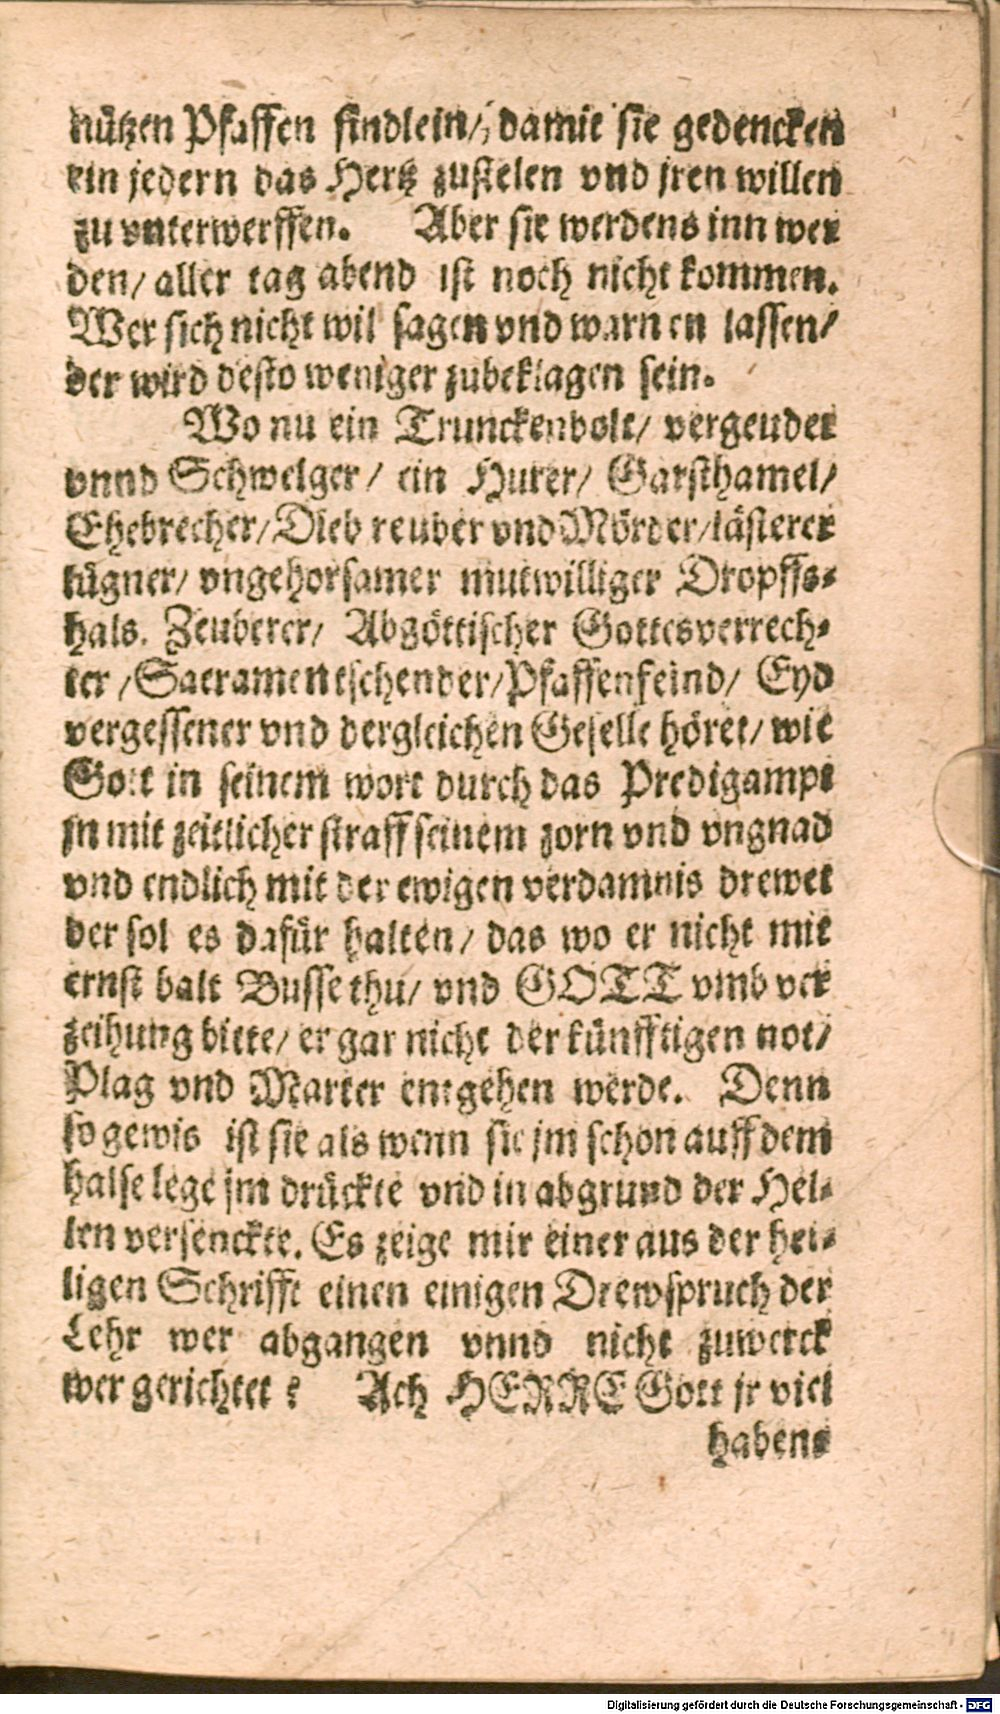 nützen Pfaffen findlein/ damit sie gedencken
ein jedern das Hertz zustelen vnd jren willen
zu vnterwerffen. Aber sie werdens inn wer
den/ aller tag abend ist noch nicht kommen.
Wer sich nicht wil sagen vnd warnen lassen/
der wird desto weniger zubeklagen sein.
Wo nu ein Trunckenbolt/ vergeuder
vnnd Schwelger/ ein Hurer/ Garsthamel/
Ehebrecher/ Dieb reuber vnd Mörder/ lästerer
lügner/ vngehorsamer mutwilliger Dropffs-
hals. Zeuberer/ Abgöttischer Gottesverrech-
ter/ Sacramentschender/ Pfaffenfeind/ Eyd
vergessener vnd dergleichen Geselle höret/ wie
Gott in seinem wort durch das Predigampt
jn mit zeitlicher straff seinem zorn vnd vngnad
vnd endlich mit der ewigen verdamnis drewet
der sol es dafür halten/ das wo er nicht mit
ernst balt Busse thu/ vnd GOTT vmb ver
zeihung bitte/ er gar nicht der künfftigen not/
Plag vnd Marter entgehen werde. Denn
so gewis ist sie als wenn sie jm schon auff dem
halse lege jm drückte vnd in abgrund der Hel-
len versenckte. Es zeige mir einer aus der hei-
ligen Schrifft einen einigen Drewspruch der
Lehr wer abgangen vnnd nicht zuwerck
wer gerichtet? Ach HERRE Gott jr viel
habens
Digitalisierung gefördert durch die Deutsche Forschungsgemeinschaft - DFG